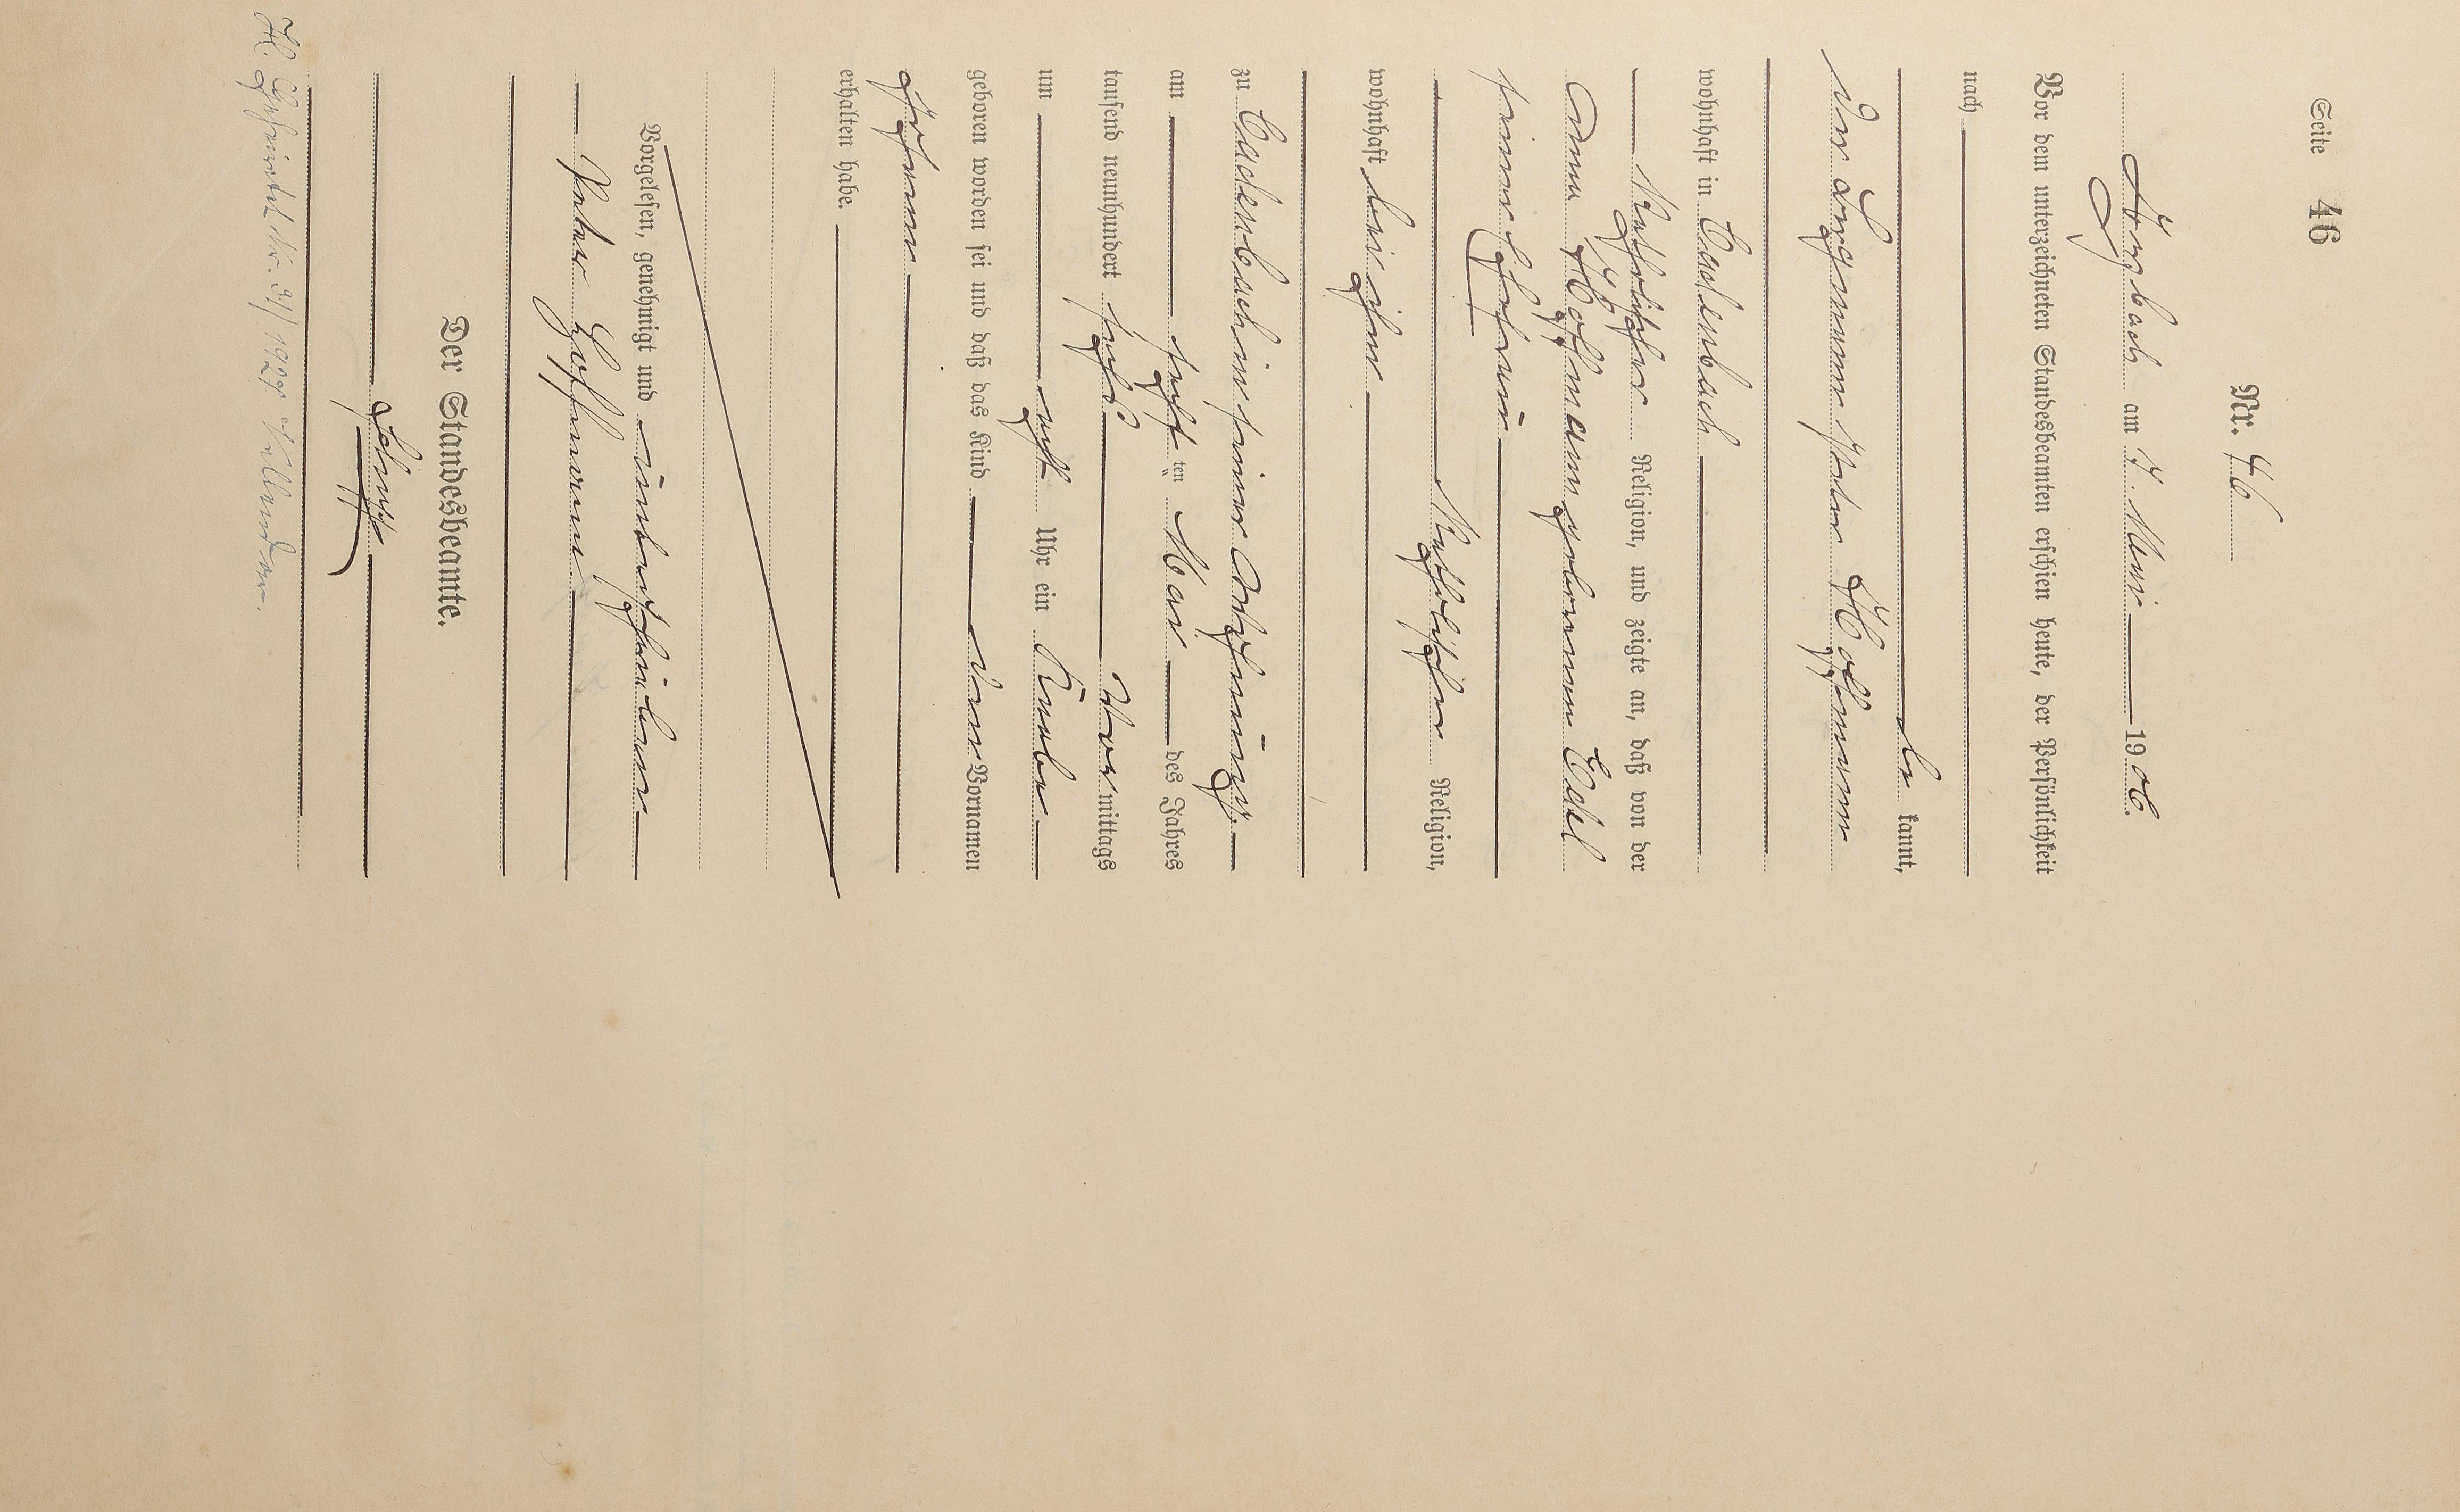 Seite 46
Nr. 46
Arzbach am 7. Mai 1906.
Vor dem unterzeichneten Standesbeamten erschien heute, der Persönlichkeit
nach
be kannt,
der Bergmann Peter Hoffmann
wohnhaft in Cadenbach
Katholischer Religion, und zeigte an, daß von der
Anna Hoffmann geborenen Edel
seiner Ehefrau
Katholischer Religion,
wohnhaft bei ihm
zu Cadenbach in seiner Wohnung
am sechsten Mai des Jahres
tausend neunhundert sechs Vormittags
um acht Uhr ein Knabe
geboren worden sei und daß das Kind den Vornamen
Johann
erhalten habe.
Vorgelesen, genehmigt und unterschrieben
Peter Hoffmann
Der Standesbeamte.
H. Geheiratet Nr. 31/1927 Vallendar.